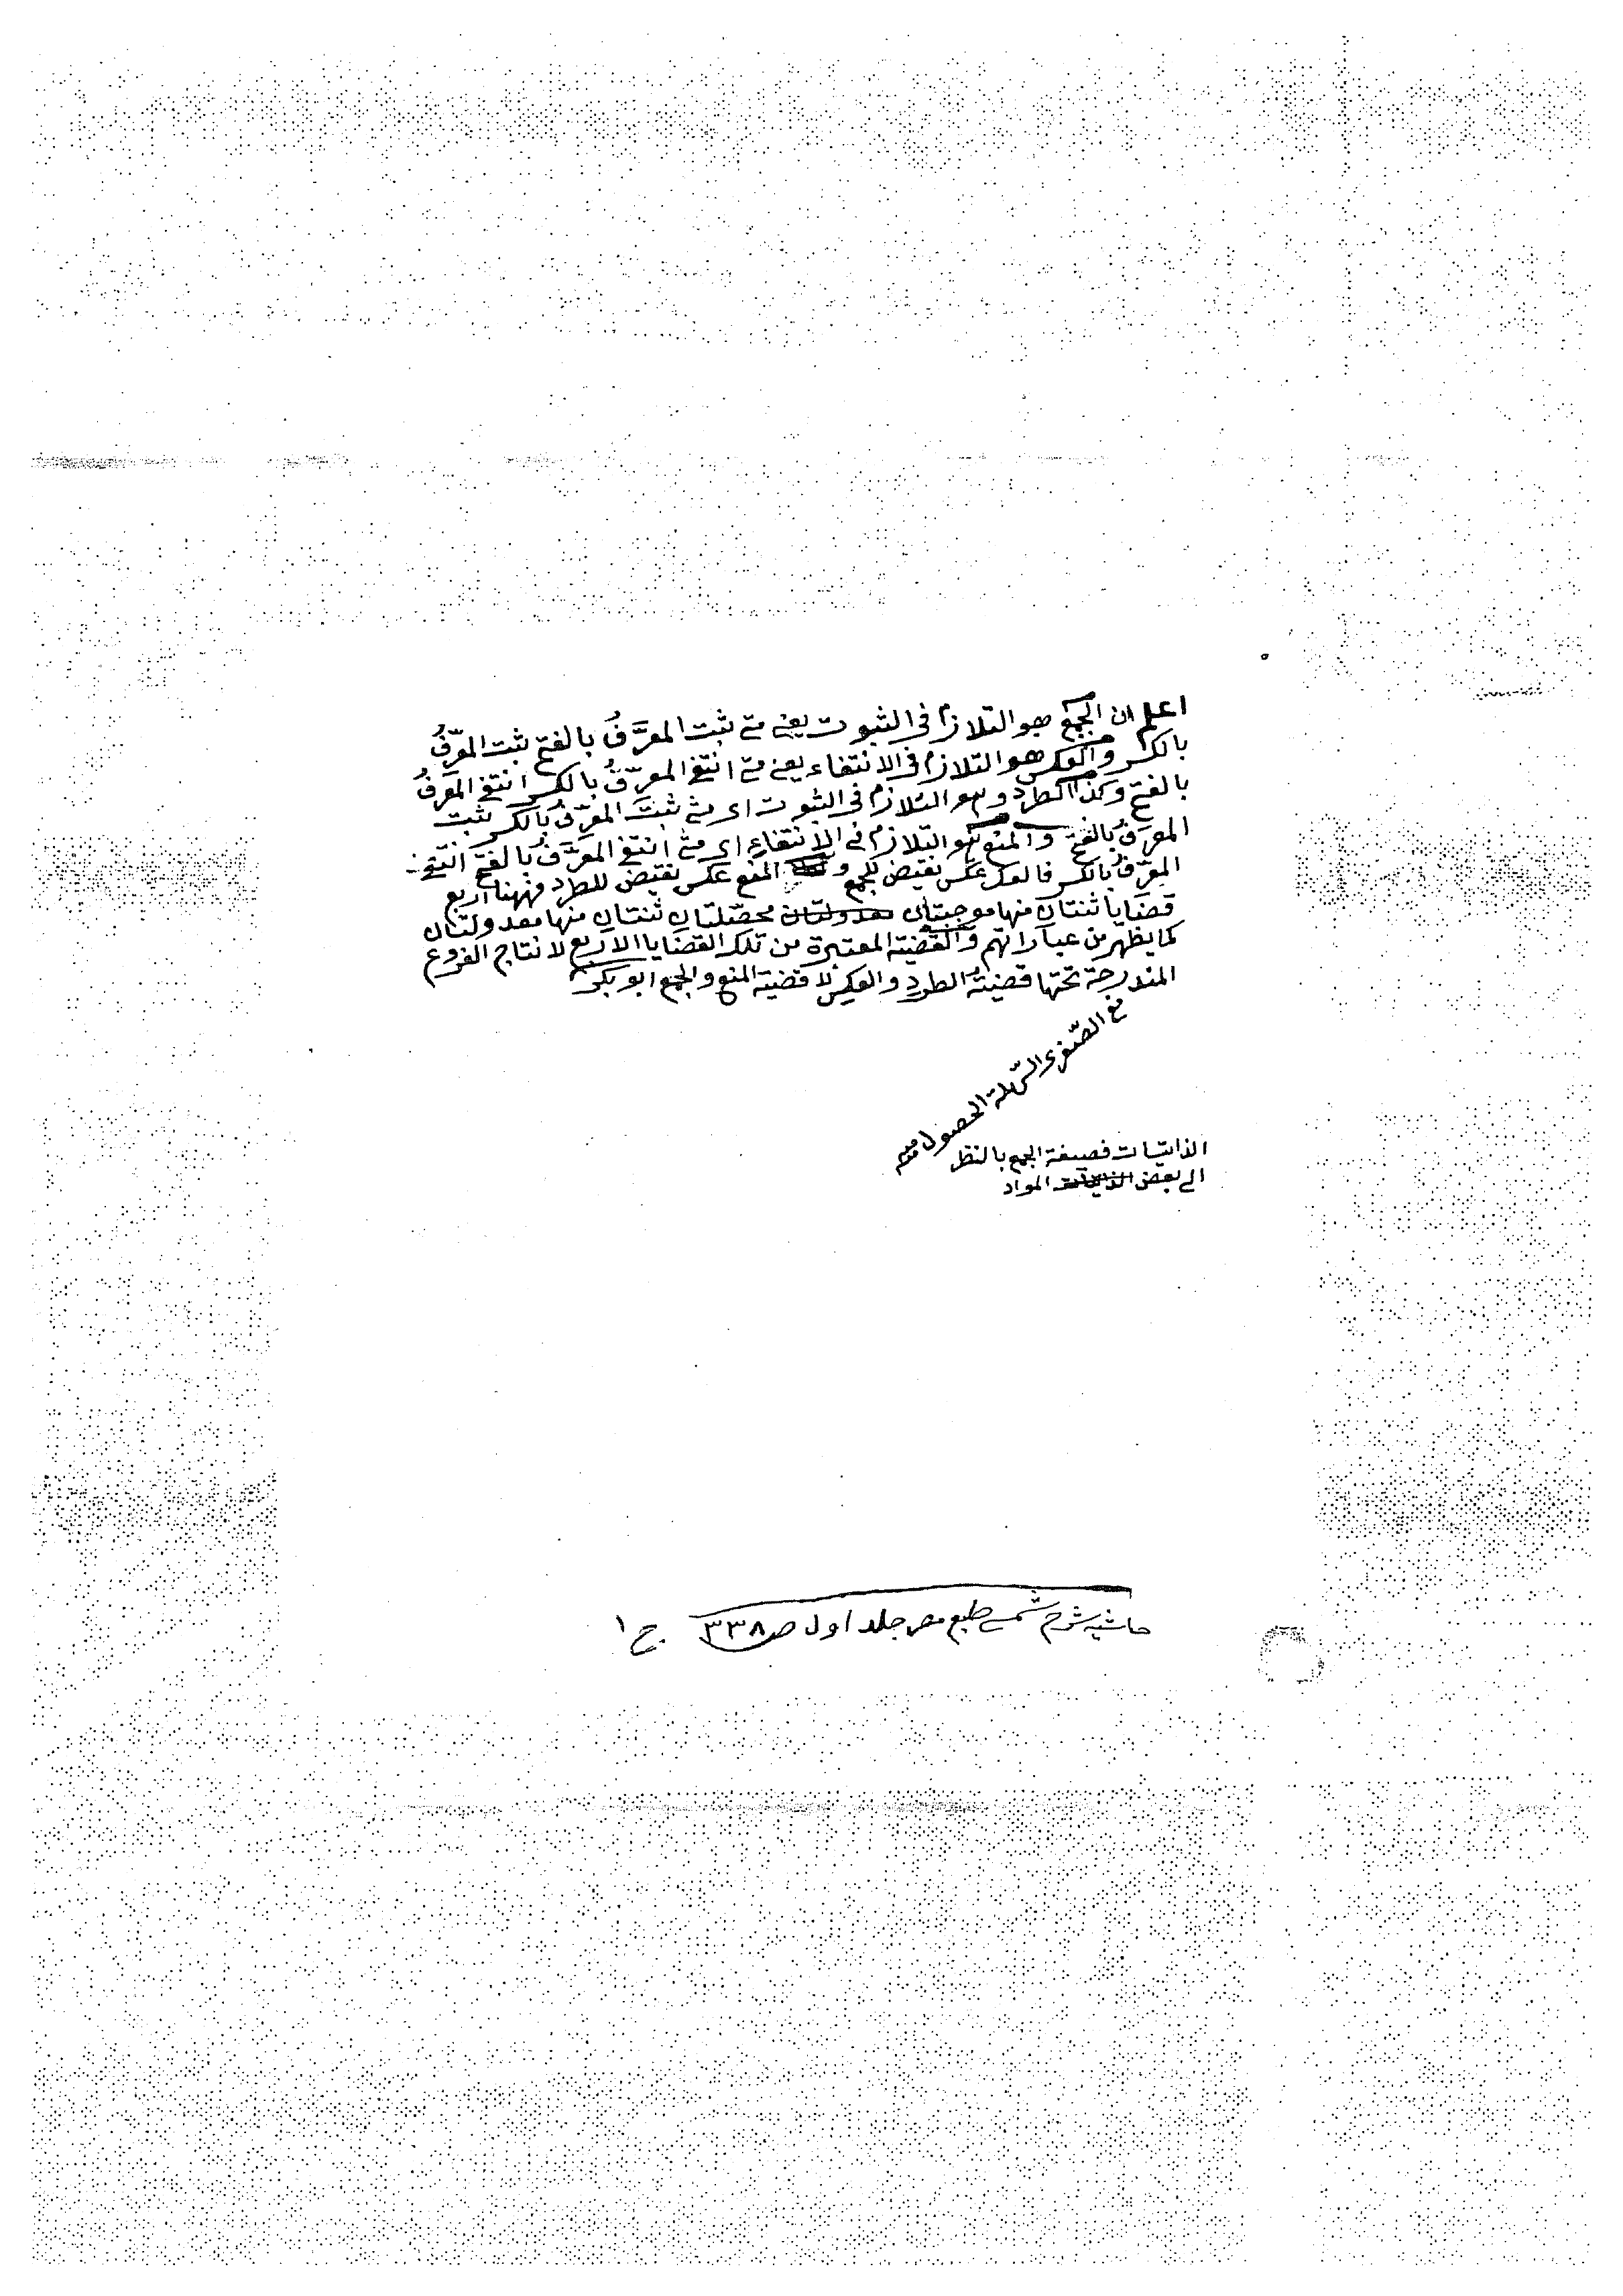 اعلم ان الجمع هو التلازم فى الثبوت يعنى متى ثبت المعرَّفُ بالفتح ثبت المعرِّفُ
بالكسر والعكس هو التلازم فى الانتفاء يعنى متى انتفى المعرِّفُ بالكسر انتفى المعرَّفُ
بالفتح وكذا الطرد وهو التلازم فى الثبوت اى متى ثبت المعرِّفُ بالكسر ثبت
المعرَّفُ بالفتح والمنع هو التلازم فى الانتفاء اى متى انتفى المعرَّفُ بالفتح انتفى
المعرِّفُ بالكسر فالعكس عكس نقيض لجمع و المنع عكس نقيض للطرد فههنا اربع
قضايا ثنتان منها موجبتان معدولتان محصّلتان ثنتان منها معدولتان
كما يظهر من عباراتهم والقضية المعتبرة من تلك القضايا الاربع لانتاج الفروع
المندرجة تحتها قضيتُه الطرد والعكس لا قضية المنع والجمع ابو بكر
مع الصّغرى السّهلة الحصول
الذاتيات فصيغة الجمع بالنظر
الى بعض المواد
حاشيه شرح شمسى طبع مصر جلد اول ص ٣٣٨ ج ١